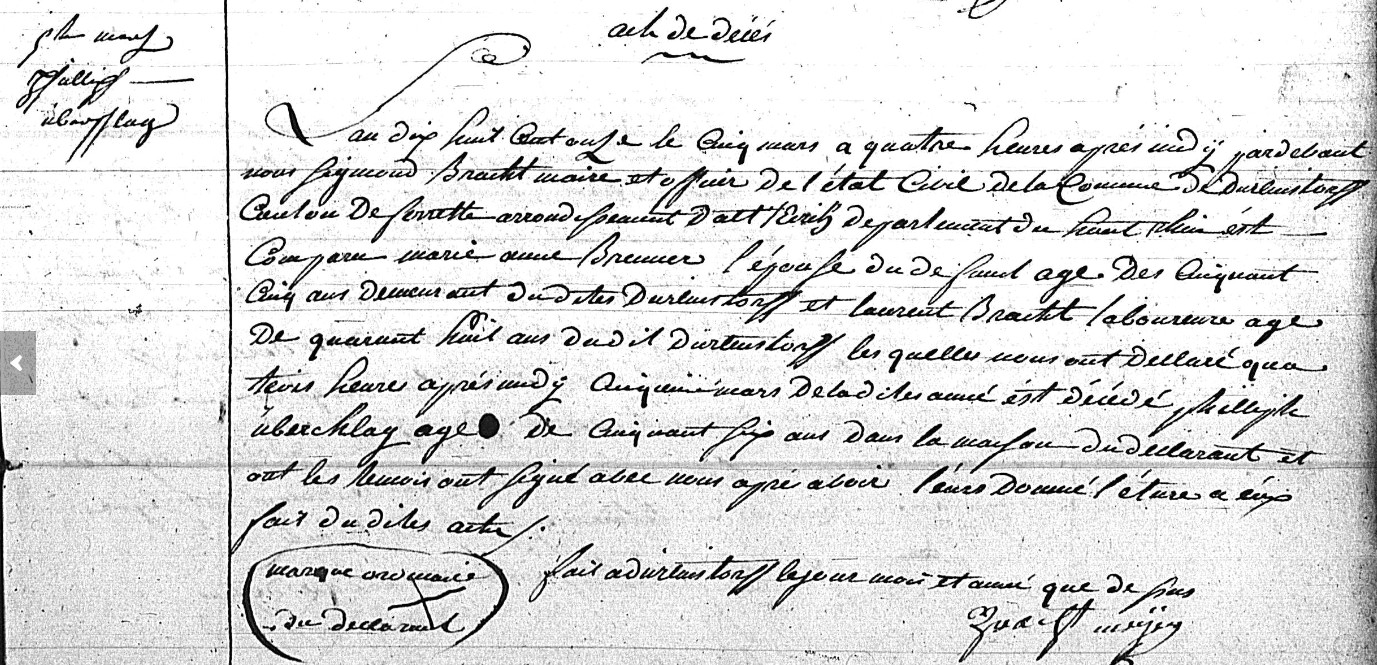 5te mars
Phillip
überschlag
acte de décés
L'an dix huit Cent onze le Cinq mars a quatre heures aprés midÿ pardebant
nous Sigmond Bracht maire et officir de l'état Civil de la Commune de Durlinstorff
Canton De ferrette arrondissement D'altkirch departement du haut Rhin ést
Comparu marie anne Brenner l'épouse du defunt age Des Cinquant
Cinq ans Demeurant dudites Durlinstorff et laurent Bracht laboureure age
De quarant huit ans dudit durlinstorff les quelles nous ont Declaré qua
trois heure aprés midÿ Cinquieme mars De la dites anné ést décédé philliph
überchlag age De Cinquant six ans dans la maison du declarant et
ont les temois ont signé abec nous apré aboir leurs Donné léture a eux
fait du dites acte
marque ordinaire
du declarant
fait a durlinstorff le jour mois et anné que de sus
Bracht